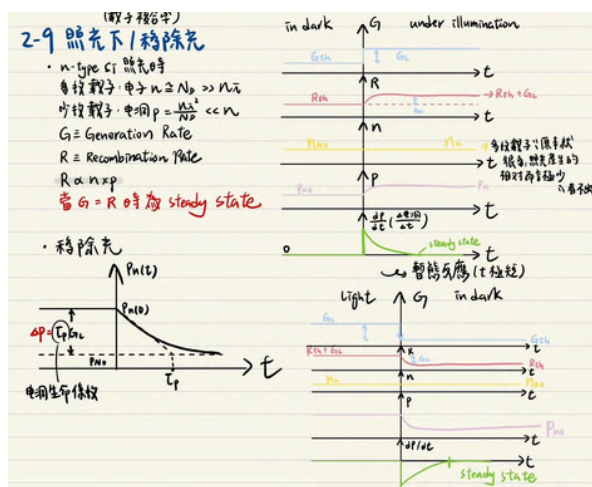 (載子複合率)
2-9 照光下/移除光
· n-type Si 照光時
多數載子:电子 n ≅ ND >> ni
少數載子:电洞 p = ni²/ND << n
G ≡ Generation Rate
R ≡ Recombination Rate
R ∝ n×p
當 G = R 時為 steady state
· 移除光
Pn(t)
Pn(0)
ΔP = τpGL
PN0
t
τp
电洞生命係數
in dark
G
under illumination
Gth
GL
t
R
Rth
→Rth+GL
GL
t
n
nN0
nn
t
多数載子∵原本就
很多,照光產生的
相对而言極少
∴看不出
P
PN0
Pn
t
dP/dt (Δ电洞/Δt)
0
steady state
t
暫態反應(t極短)
Light
G
in dark
GL
Gth
t
Rth+GL
R
GL
Rth
t
nn
n
nN0
t
P
PN0
t
dP/dt
t
steady state